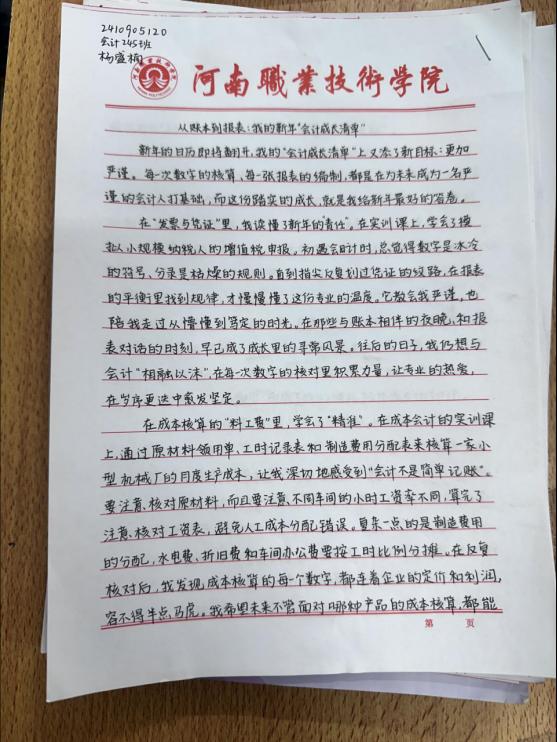 2410905120
会计245班
杨盛楠
河南職業技術学院
从账本到报表:我的新年"会计成长清单"
新年的日历即将翻开,我的"会计成长清单"上又添了新目标:更加
严谨。每一次数字的核算、每一张报表的编制,都是在为未来成为一名严
谨的会计人打基础,而这份踏实的成长,就是我给新年最好的答卷。
在"发票与凭证"里,我读懂了新年的"责任"。在实训课上,学会了模
拟小规模纳税人的增值税申报。初遇会计时,总觉得数字是冰冷
的符号、分录是枯燥的规则。直到指尖反复划过凭证的纹路,在报表
的平衡里找到规律,才慢慢懂了这份专业的温度。它教会我严谨,也
陪我走过从懵懂到笃定的时光。在那些与账本相伴的夜晚,和报
表对话的时刻,早已成了成长里的寻常风景。往后的日子,我仍想与
会计"相融以沫",在每一次数字的核对里积累力量,让专业的热爱,
在岁序更迭中愈发坚定。
在成本核算的"料工费"里,学会了"精准"。在成本会计的实训课
上,通过原材料领用单、工时记录表和制造费用分配表来核算一家小
型机械厂的月度生产成本,让我深切地感受到"会计不是简单记账"。
要注意、核对原材料,而且要注意、不同车间的小时工资率不同,算完了
注意、核对工资表,避免人工成本分配错误。复杂一点的是制造费用
的分配,水电费、折旧费和车间办公费要按工时比例分摊。在反复
核对后,我发现成本核算的每个数字,都连着企业的定价和利润,
容不得半点马虎。我希望未来不管面对哪种产品的成本核算,都能
第 页